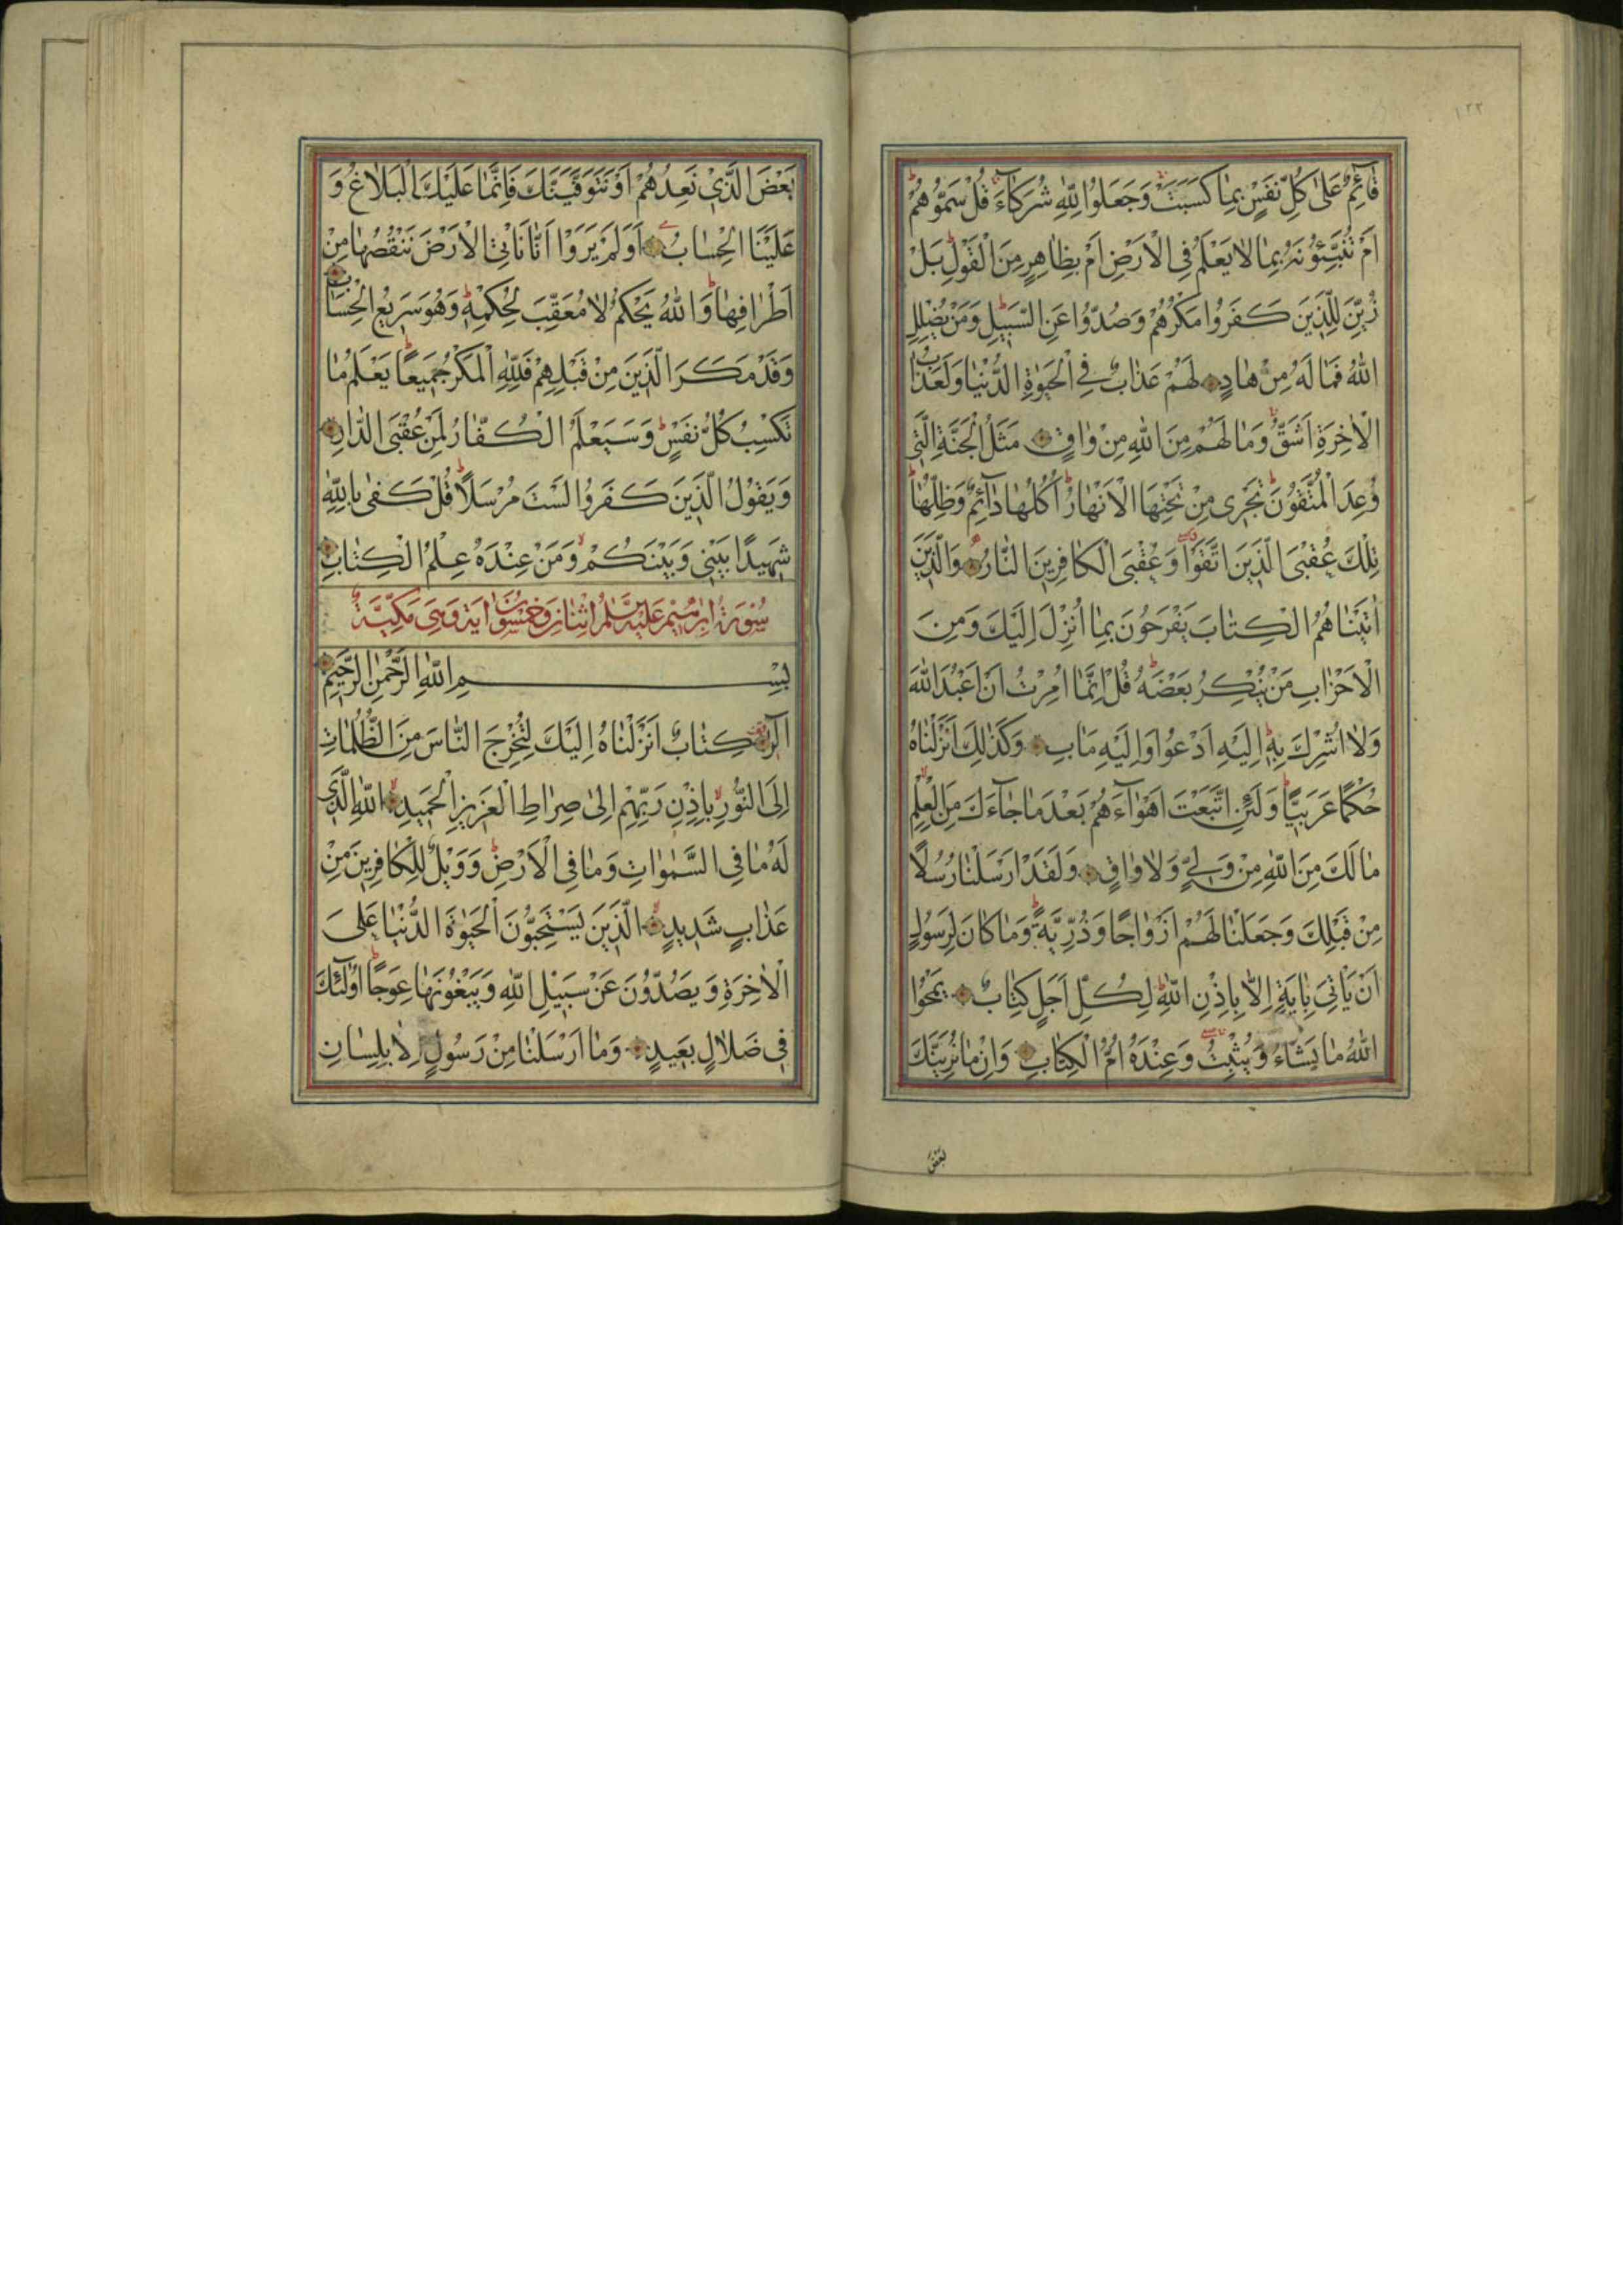 ١٢٢
قَائِمٌ عَلٰى كُلِّ نَفْسٍ بِمَا كَسَبَتْ وَجَعَلُوا لِلّٰهِ شُرَكَآءَ قُلْ سَمُّوهُمْ
اَمْ تُنَبِّئُونَهُ بِمَا لَا يَعْلَمُ فِى الْاَرْضِ اَمْ بِظَاهِرٍ مِنَ الْقَوْلِ بَلْ
زُيِّنَ لِلَّذِينَ كَفَرُوا مَكْرُهُمْ وَصُدُّوا عَنِ السَّبِيلِ وَمَنْ يُضْلِلِ
اللّٰهُ فَمَا لَهُ مِنْ هَادٍ لَهُمْ عَذَابٌ فِى الْحَيٰوةِ الدُّنْيَا وَلَعَذَابُ
الْاٰخِرَةِ اَشَقُّ وَمَا لَهُمْ مِنَ اللّٰهِ مِنْ وَاقٍ مَثَلُ الْجَنَّةِ الَّتِى
وُعِدَ الْمُتَّقُونَ تَجْرِى مِنْ تَحْتِهَا الْاَنْهَارُ اُكُلُهَا دَآئِمٌ وَظِلُّهَا
تِلْكَ عُقْبَى الَّذِينَ اتَّقَوْا وَعُقْبَى الْكَافِرِينَ النَّارُ وَالَّذِينَ
اٰتَيْنَاهُمُ الْكِتَابَ يَفْرَحُونَ بِمَا اُنْزِلَ اِلَيْكَ وَمِنَ
الْاَحْزَابِ مَنْ يُنْكِرُ بَعْضَهُ قُلْ اِنَّمَا اُمِرْتُ اَنْ اَعْبُدَ اللّٰهَ
وَلَا اُشْرِكَ بِهِ اِلَيْهِ اَدْعُوا وَاِلَيْهِ مَاٰبِ وَكَذٰلِكَ اَنْزَلْنَاهُ
حُكْمًا عَرَبِيًّا وَلَئِنِ اتَّبَعْتَ اَهْوَآءَهُمْ بَعْدَ مَا جَآءَكَ مِنَ الْعِلْمِ
مَا لَكَ مِنَ اللّٰهِ مِنْ وَلِىٍّ وَلَا وَاقٍ وَلَقَدْ اَرْسَلْنَا رُسُلًا
مِنْ قَبْلِكَ وَجَعَلْنَا لَهُمْ اَزْوَاجًا وَذُرِّيَّةً وَمَا كَانَ لِرَسُولٍ
اَنْ يَاْتِىَ بِاٰيَةٍ اِلَّا بِاِذْنِ اللّٰهِ لِكُلِّ اَجَلٍ كِتَابٌ يَمْحُوا
اللّٰهُ مَا يَشَآءُ وَيُثْبِتُ وَعِنْدَهُ اُمُّ الْكِتَابِ وَاِنْ مَا نُرِيَنَّكَ
بَعْضَ
بَعْضَ الَّذِى نَعِدُهُمْ اَوْ نَتَوَفَّيَنَّكَ فَاِنَّمَا عَلَيْكَ الْبَلَاغُ وَ
عَلَيْنَا الْحِسَابُ اَوَلَمْ يَرَوْا اَنَّا نَاْتِى الْاَرْضَ نَنْقُصُهَا مِنْ
اَطْرَافِهَا وَاللّٰهُ يَحْكُمُ لَا مُعَقِّبَ لِحُكْمِهِ وَهُوَ سَرِيعُ الْحِسَابِ
وَقَدْ مَكَرَ الَّذِينَ مِنْ قَبْلِهِمْ فَلِلّٰهِ الْمَكْرُ جَمِيعًا يَعْلَمُ مَا
تَكْسِبُ كُلُّ نَفْسٍ وَسَيَعْلَمُ الْكُفَّارُ لِمَنْ عُقْبَى الدَّارِ
وَيَقُولُ الَّذِينَ كَفَرُوا لَسْتَ مُرْسَلًا قُلْ كَفٰى بِاللّٰهِ
شَهِيدًا بَيْنِى وَبَيْنَكُمْ وَمَنْ عِنْدَهُ عِلْمُ الْكِتَابِ
سُورَةُ اِبْرٰهِيمَ عَلَيْهِ السَّلَامُ اِثْنَانِ وَخَمْسُونَ اٰيَةً وَهِىَ مَكِّيَّةٌ
بِسْمِ اللّٰهِ الرَّحْمٰنِ الرَّحِيمِ
الٓرٰ كِتَابٌ اَنْزَلْنَاهُ اِلَيْكَ لِتُخْرِجَ النَّاسَ مِنَ الظُّلُمَاتِ
اِلَى النُّورِ بِاِذْنِ رَبِّهِمْ اِلٰى صِرَاطِ الْعَزِيزِ الْحَمِيدِ اللّٰهِ الَّذِى
لَهُ مَا فِى السَّمٰوَاتِ وَمَا فِى الْاَرْضِ وَوَيْلٌ لِلْكَافِرِينَ مِنْ
عَذَابٍ شَدِيدٍ الَّذِينَ يَسْتَحِبُّونَ الْحَيٰوةَ الدُّنْيَا عَلَى
الْاٰخِرَةِ وَيَصُدُّونَ عَنْ سَبِيلِ اللّٰهِ وَيَبْغُونَهَا عِوَجًا اُولٰٓئِكَ
فِى ضَلَالٍ بَعِيدٍ وَمَا اَرْسَلْنَا مِنْ رَسُولٍ اِلَّا بِلِسَانِ